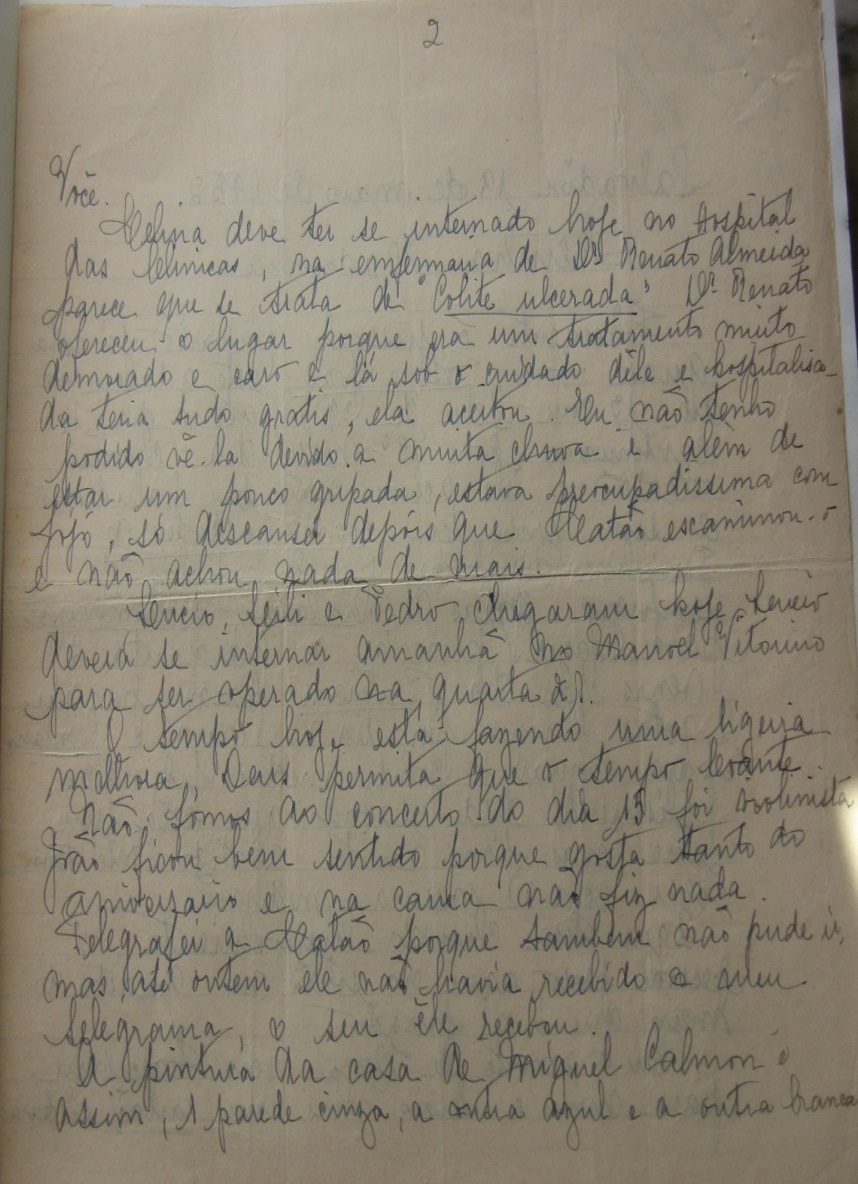 2
Você.
Celina deve ter se internado hoje no Hospital
das Clinicas, na enfermaria de Dr Renato Almeida
parece que se trata de "Colite ulcerada" Dr. Renato
ofereceu o lugar porque era um tratamento muito
demorado e caro e lá sob o cuidado dêle e hospitalisa-
da teria tudo gratis, ela aceitou. Eu não tenho
podido vê-la devido a muita chuva e além de
estar um pouco gripada, estava preocupadissima com
Jojó, só descansei depois que Natão escaminou-o
e não achou nada de mais.
Lucio, Leili e Pedro chegaram hoje, Lucio
deverá se internar amanhã no Manoel Vitorino
para ser operado na quarta
O tempo hoje está fazendo uma ligeira
melhora, Deus permita que o tempo levante.
Não fomos ao concerto do dia 15 foi violinista
João ficou bem sentido porque gosta tanto do
aniversario e na cama não fiz nada.
Telegrafei a Natão porque tambem não pude ir,
mas, até ontem ele não havia recebido o meu
telegrama, o seu êle recebeu.
A pintura da casa de Miguel Calmon é
assim, 1 parede cinza, a outra azul e a outra branca